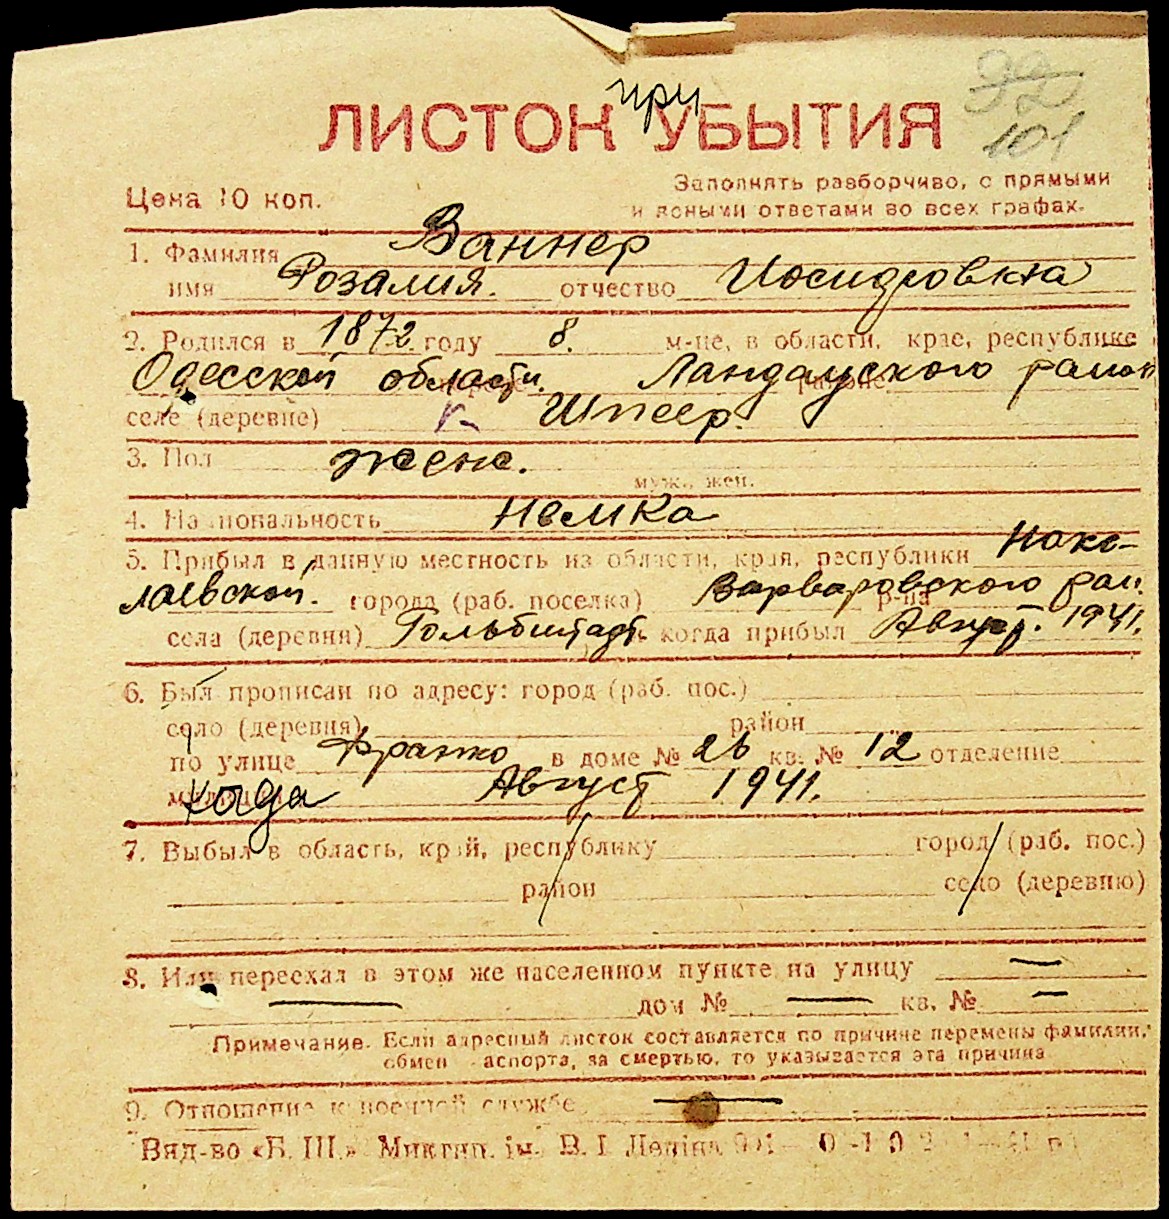 92
101
при
ЛИСТОК УБЫТИЯ
Цена 10 коп.
Заполнять разборчиво, с прямыми
и ясными ответами во всех графах.
1. Фамилия Ваннер
имя Розалия. отчество Иосидровна
2. Родился в 1872 году 8. м-це, в области, крае, республике
Одесской области. Ландауского район
селе (деревне) к. Шпеер.
3. Пол женс.
муж., жен.
4. Национальность немка
5. Прибыл в данную местность из области, края, республики Нико-
лаевской. города (раб. поселка) Варваровского р-на рай.
села (деревня) Гольбштадт. когда прибыл Август. 1941.
6. Был прописан по адресу: город (раб. пос.)
село (деревня) район
по улице Франко в доме № 26 кв. № 12 отделение
когда Август 1941.
7. Выбыл в область, край, республику город (раб. пос.)
район село (деревню)
8. Или переехал в этом же населенном пункте на улицу —
— дом № — кв. № —
Примечание. Если адресный листок составляется по причине перемены фамилии,
обмен паспорта, за смертью, то указывается эта причина
9. Отношение к военной службе —
Вид-во «Б. Ш.» Микгип. ім. В. І. Леніна